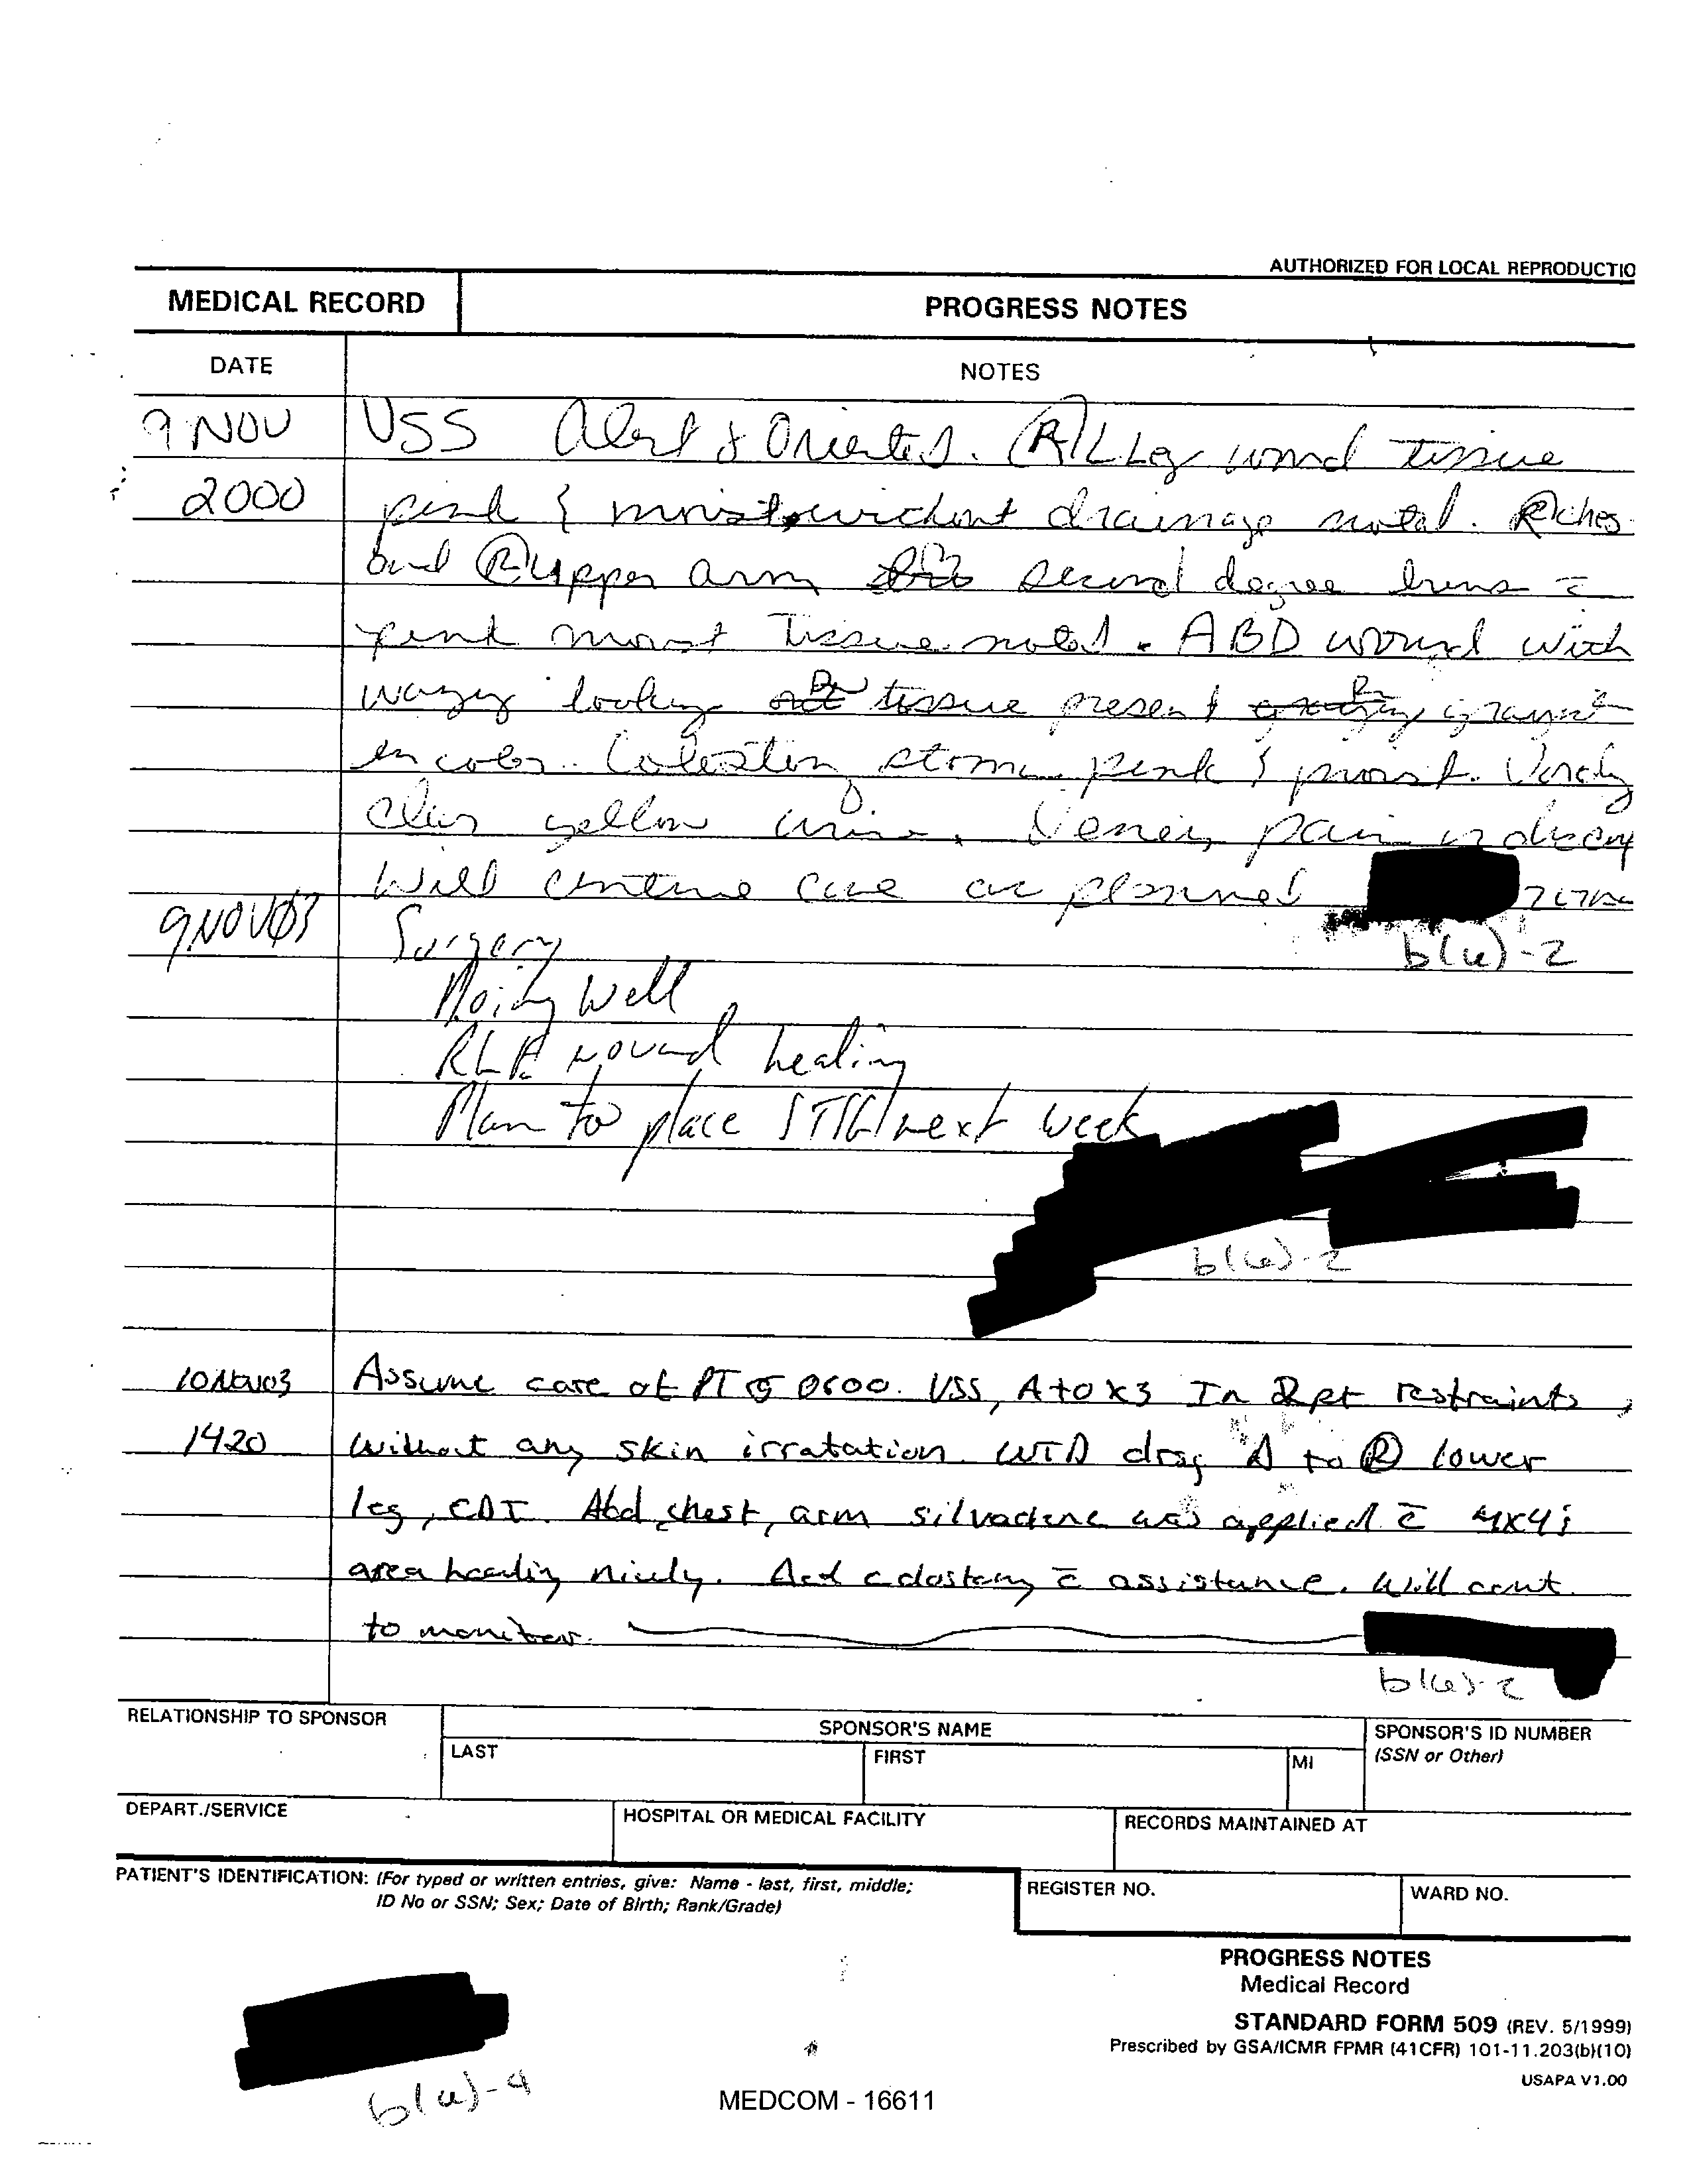 AUTHORIZED FOR LOCAL REPRODUCTIO
MEDICAL RECORD
PROGRESS NOTES
DATE
NOTES
9 NOV
VSS Alert & Oriented. (R) L Leg wound tissue
2000
pink & moist drainage noted. (R) Ches
and (R) upper arm second degree burns c̄
pink moist tissue noted. ABD wound with
waxy looking tissue present grayish
in color. stoma pink & moist.
clear yellow urine. pain
Will continue care as planned
b(6)-2
9 NOV 03
Surgery
Doing Well
RLE wound healing
Plan to place STSG next week
b(6)-2
10 NOV 03
Assume care of PT @ 0600. VSS, A+O x3 In 2pt restraints,
1420
without any skin irratation. WTD drsg Δ to (R) lower
leg, CDI. Abd, chest, arm silvadene was applied c̄ 4x4's
area healing nicely. colostomy c̄ assistance. Will cont.
to monitor.
b(6)-2
RELATIONSHIP TO SPONSOR
SPONSOR'S NAME
SPONSOR'S ID NUMBER
(SSN or Other)
LAST
FIRST
MI
DEPART./SERVICE
HOSPITAL OR MEDICAL FACILITY
RECORDS MAINTAINED AT
PATIENT'S IDENTIFICATION: (For typed or written entries, give: Name - last, first, middle;
ID No or SSN; Sex; Date of Birth; Rank/Grade)
REGISTER NO.
WARD NO.
PROGRESS NOTES
Medical Record
STANDARD FORM 509 (REV. 5/1999)
Prescribed by GSA/ICMR FPMR (41CFR) 101-11.203(b)(10)
USAPA V1.00
b(6)-4
MEDCOM - 16611